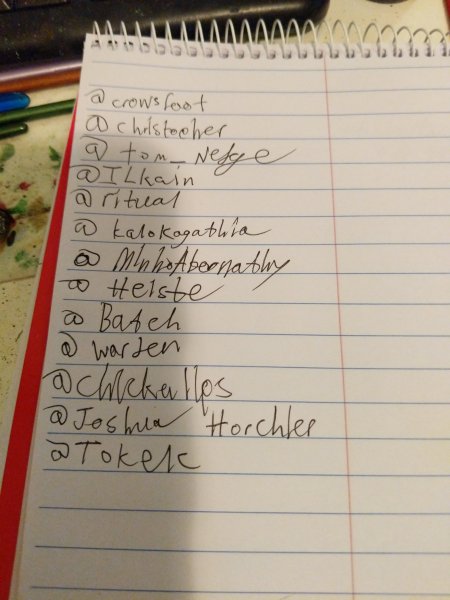 @crowsfoot
@christopher
@tom_Nefge
@ILkain
@ritual
@kalokagathia
@MinhoAbernathy
@Heiste
@Batch
@warden
@chickenlips
@Joshua Horchler
@Tokek